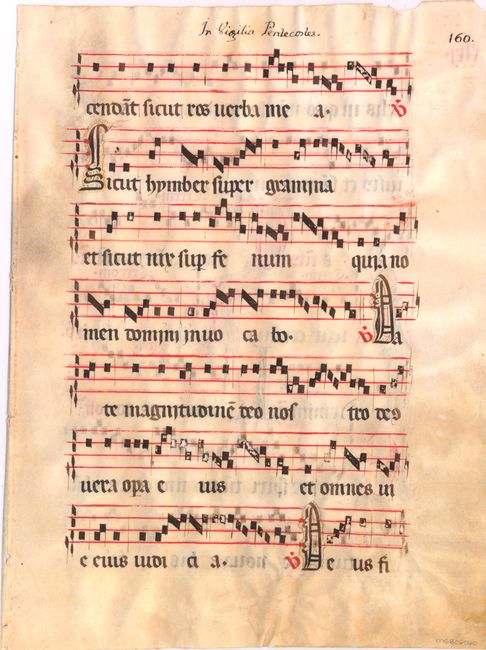 In Vigilia Pentecostes.
160.
cendāt sicut ros verba me a. ℣
Sicut hymber super gramina
et sicut nix sup̄ fe num quia no
men domini invo ca bo. ℣ Da
te magnitudinē deo nos tro deus
vera opa e ius et omnes vi
e eius iudi ci a. ℣ De us fi